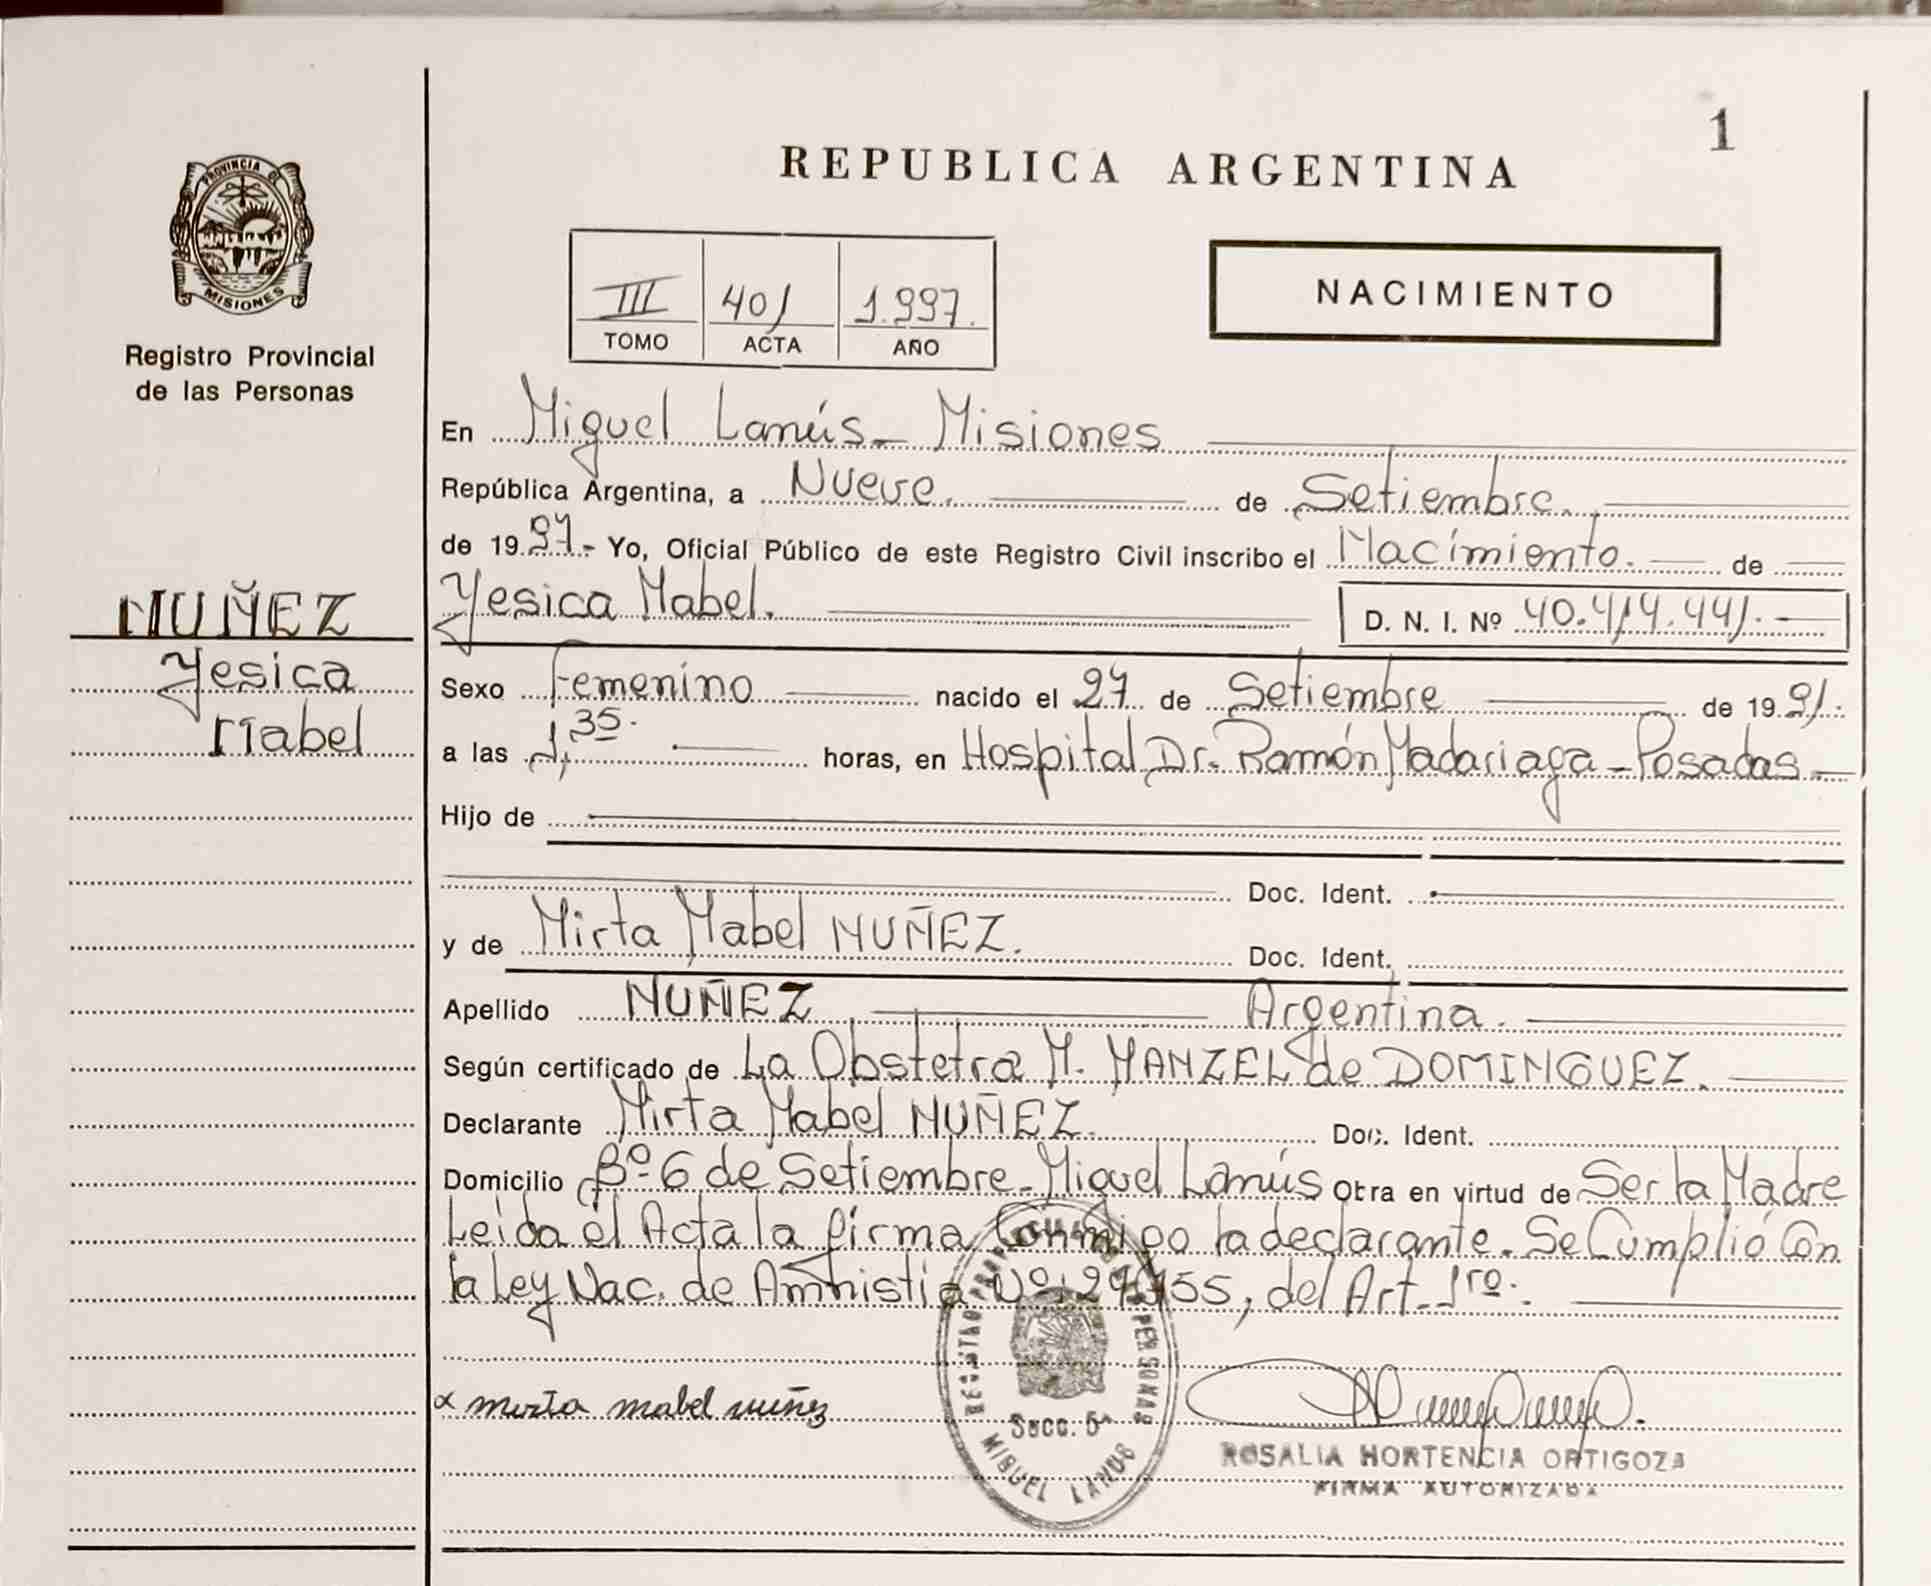 1
REPUBLICA ARGENTINA
PROVINCIA DE
MISIONES
Registro Provincial
de las Personas
III 401 1.997.
TOMO ACTA AÑO
NACIMIENTO
En Miguel Lanús - Misiones
República Argentina, a Nueve. de Setiembre.
de 19 97.- Yo, Oficial Público de este Registro Civil inscribo el Nacimiento. de
Yesica Mabel. D. N. I. Nº 40.414.441.-
NUÑEZ
Yesica
Mabel
Sexo Femenino nacido el 27 de Setiembre de 19 91.
a las 1,35. horas, en Hospital Dr. Ramón Madariaga - Posadas -
Hijo de
Doc. Ident.
y de Mirta Mabel NUÑEZ. Doc. Ident.
Apellido NUÑEZ Argentina.
Según certificado de La Obstetra M. MANZEL de DOMINGUEZ.
Declarante Mirta Mabel NUÑEZ. Doc. Ident.
Domicilio Bº 6 de Setiembre - Miguel Lanús Obra en virtud de Ser la Madre
Leida el Acta la firma Conmigo la declarante. Se Cumplió Con
la Ley Nac. de Amnistia Nº 24755, del Art. 1ro.
x mirta mabel nuñez
Secc. 5ª
MIGUEL LANUS
ROSALIA HORTENCIA ORTIGOZA
FIRMA AUTORIZADA